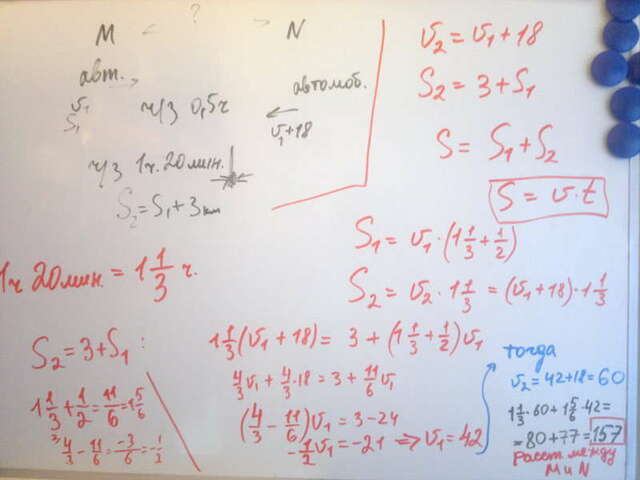 M ← ? → N
авт. →
автомоб. ←
v₁
S₁
ч/з 0,5ч
v₁+18
ч/з 1ч. 20мин.
S₂=S₁+3км
v₂ = v₁ + 18
S₂ = 3 + S₁
S = S₁ + S₂
S = v · t
S₁ = v₁ · (1 1/3 + 1/2)
S₂ = v₂ · 1 1/3 = (v₁ + 18) · 1 1/3
1ч 20мин. = 1 1/3 ч.
S₂ = 3 + S₁ :
1 1/3 + 1/2 = 11/6 = 1 5/6
4/3 - 11/6 = -3/6 = -1/2
1 1/3 (v₁ + 18) = 3 + (1 1/3 + 1/2) v₁
4/3 v₁ + 4/3 · 18 = 3 + 11/6 v₁
(4/3 - 11/6) v₁ = 3 - 24
-1/2 v₁ = -21 ⇒ v₁ = 42
тогда
v₂ = 42+18 = 60
1 1/3 · 60 + 1 5/6 · 42 =
= 80 + 77 = 157
расст. между
M и N